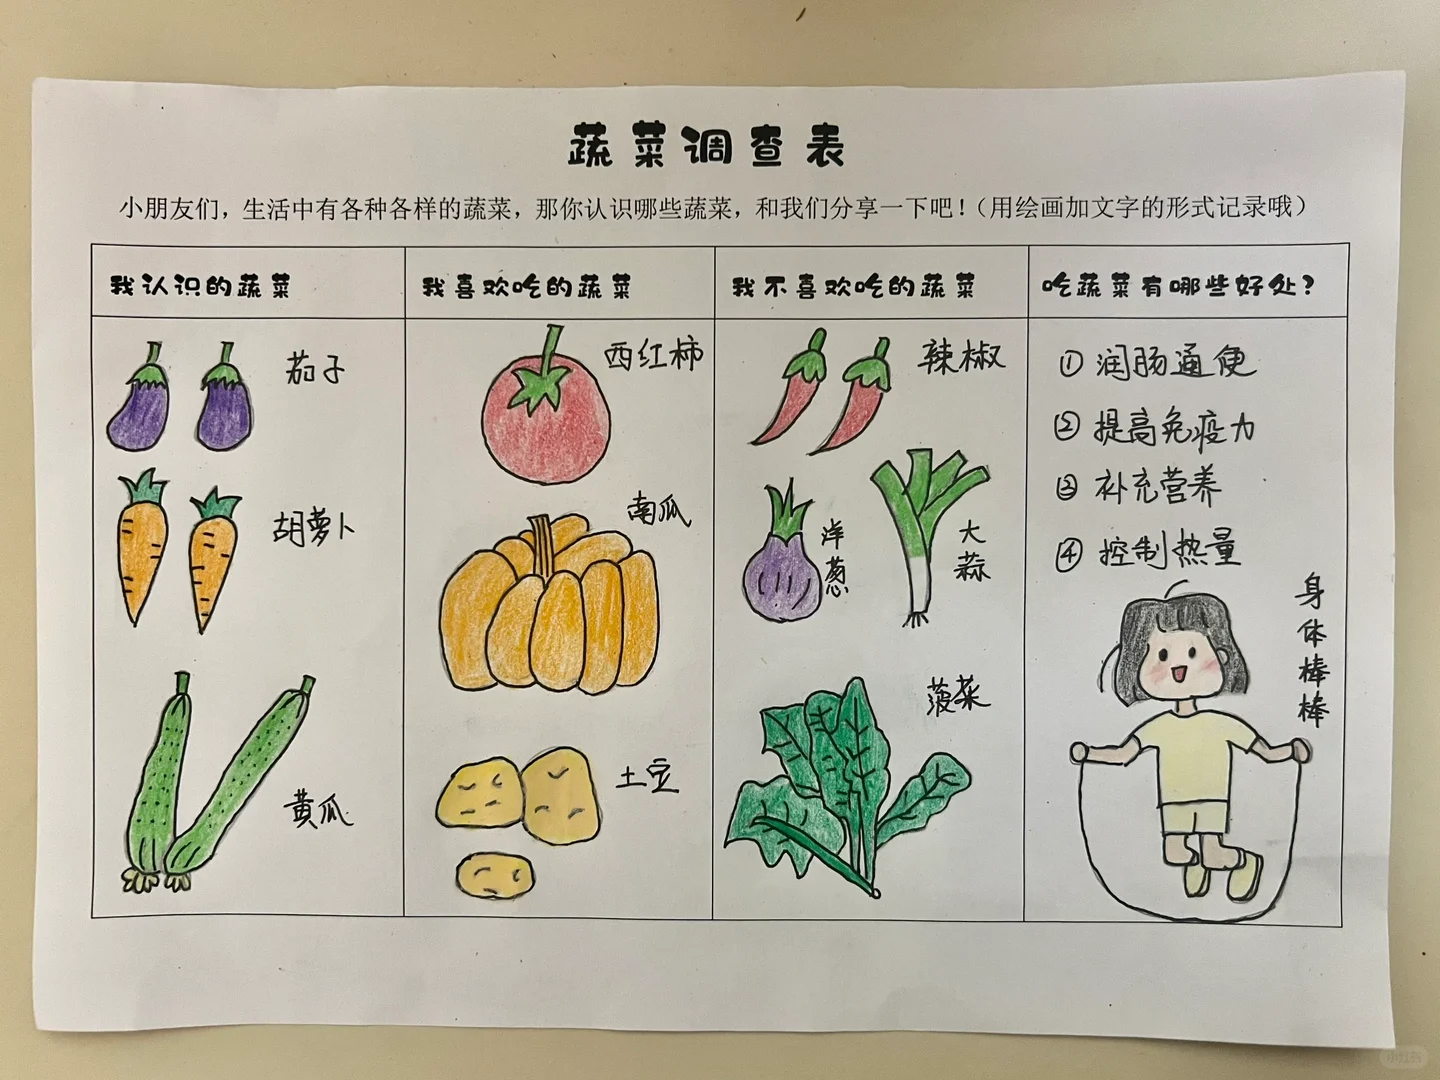 蔬菜调查表
小朋友们，生活中有各种各样的蔬菜，那你认识哪些蔬菜，和我们分享一下吧！（用绘画加文字的形式记录哦）
我认识的蔬菜
茄子
胡萝卜
黄瓜
我喜欢吃的蔬菜
西红柿
南瓜
土豆
我不喜欢吃的蔬菜
辣椒
洋葱
大蒜
菠菜
吃蔬菜有哪些好处？
①润肠通便
②提高免疫力
③补充营养
④控制热量
身体棒棒
小红书